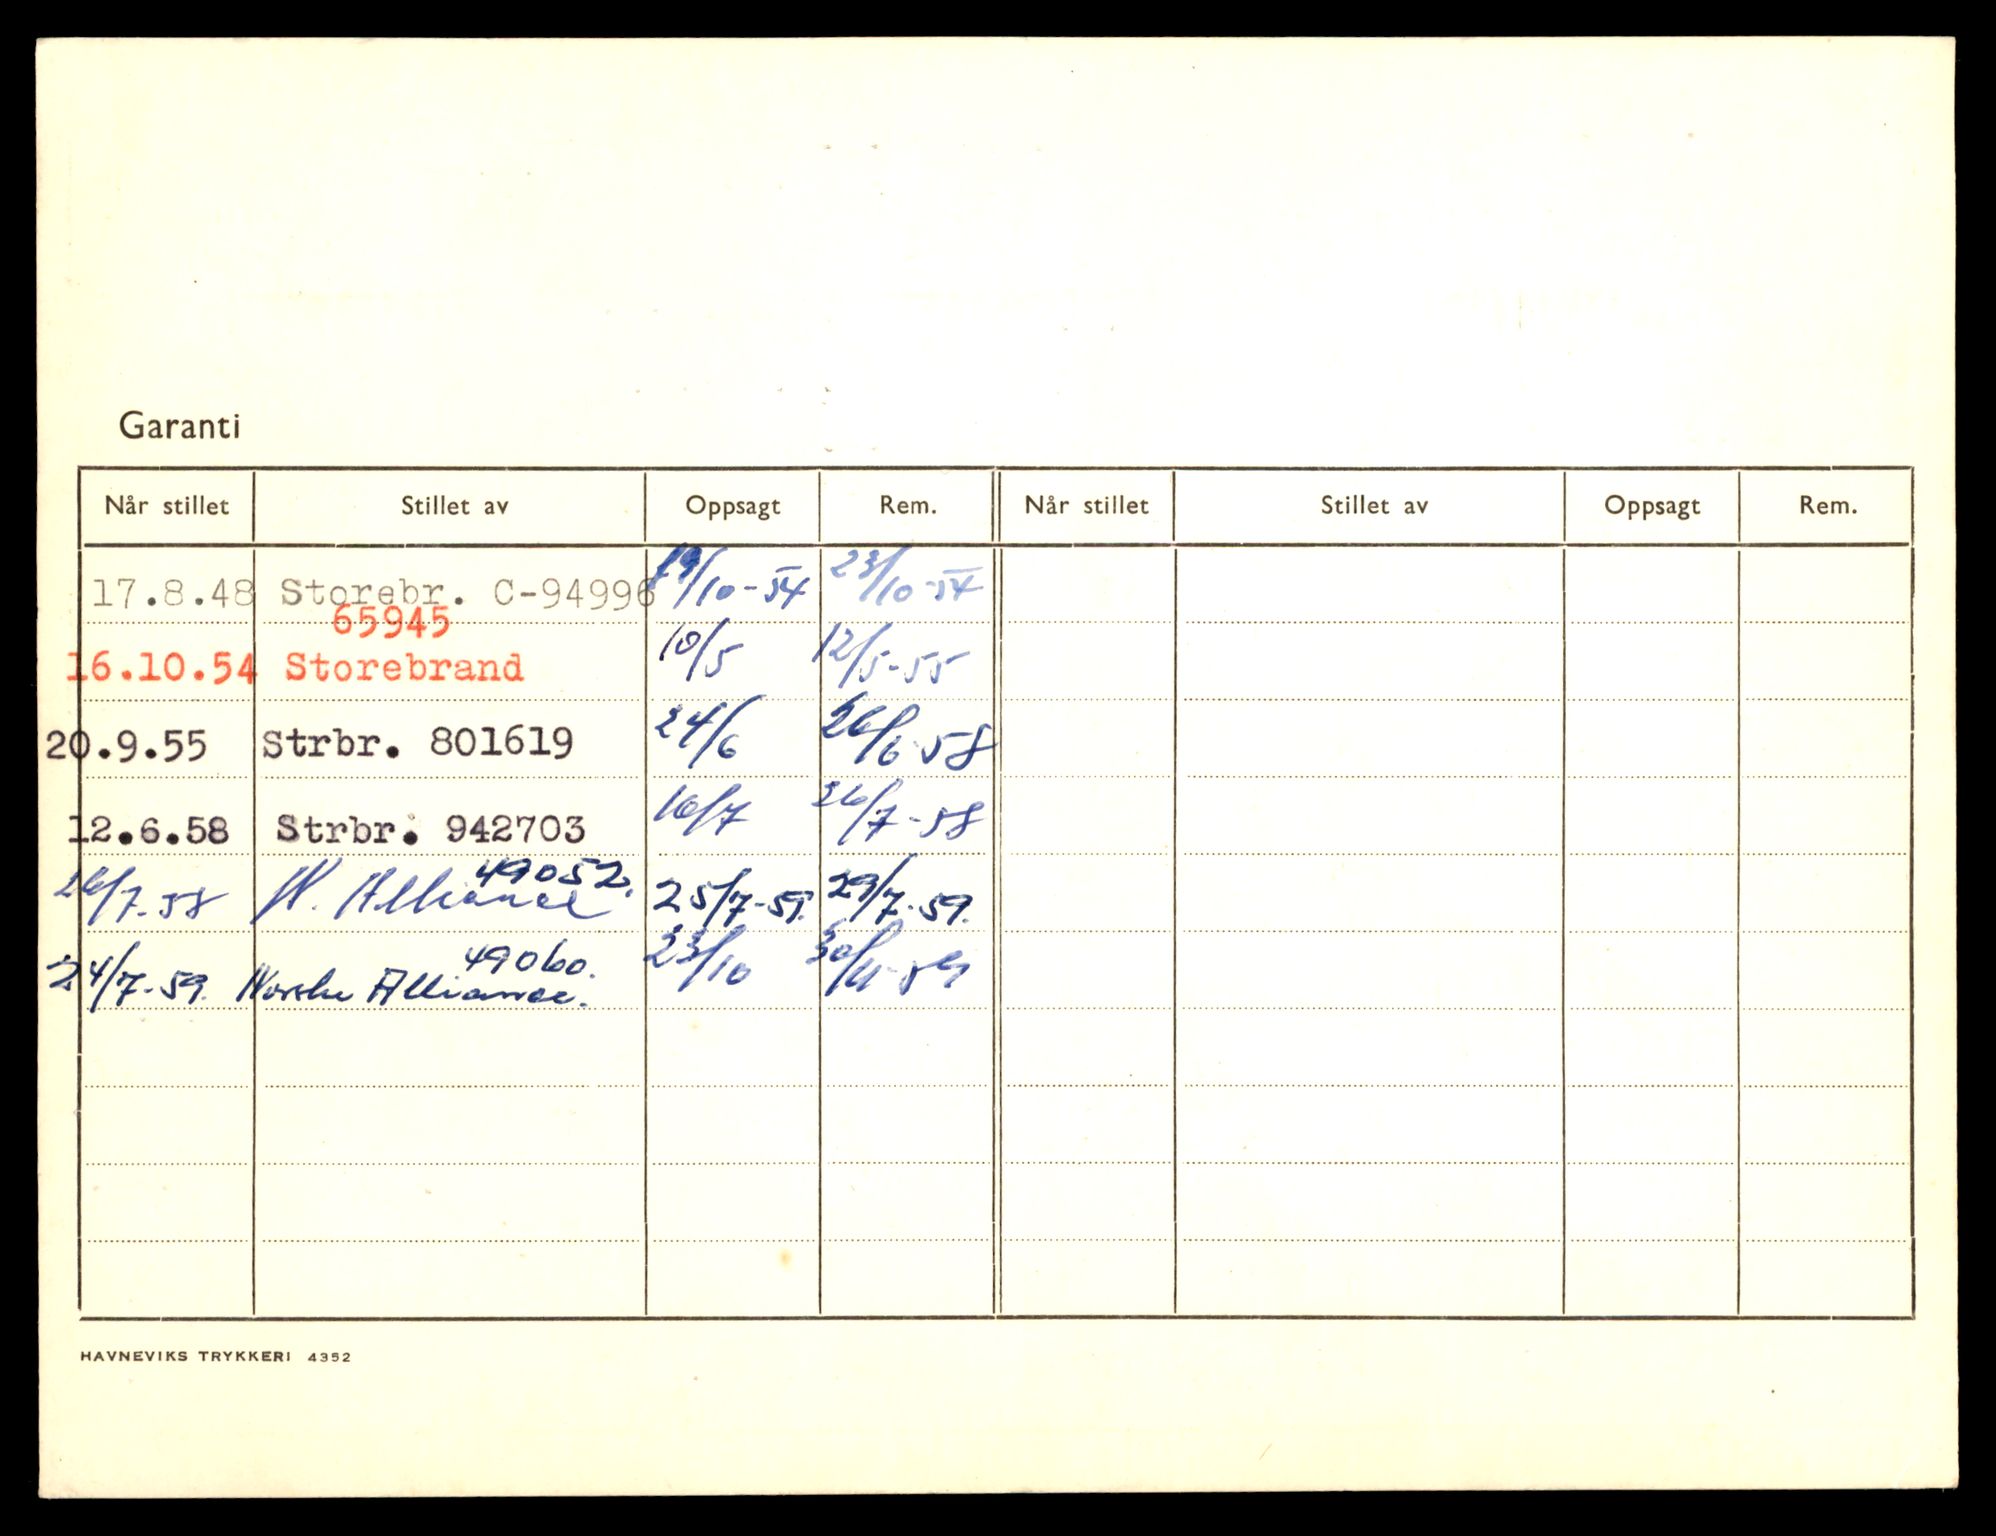 Garanti
Når stillet Stillet av Oppsagt Rem. Når stillet Stillet av Oppsagt Rem.
17.8.48 Storebr. C-94996 19/10-54 23/10-54
65945
16.10.54 Storebrand 10/5 12/5-55
20.9.55 Strbr. 801619 24/6 26/6-58
12.6.58 Strbr. 942703 16/7 26/7-58
49052.
26/7-58 N. Alliance 25/7-59. 29/7-59.
49060.
24/7-59. Norske Alliance. 23/10 30/11-59
HAVNEVIKS TRYKKERI 4352